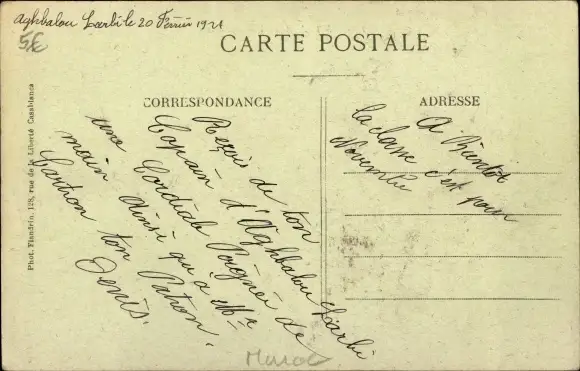 Aghbalou Larbi le 20 Février 1921
5€
CARTE POSTALE
CORRESPONDANCE
ADRESSE
Reçois de ton
Copain d'Aghbalou Larbi
une Cordiale Poignée de
main ainsi qu'a Mr
Cartron ton Patron.
Denis.
A Bientôt
la classe c'est pour
Novembre
Phot. Flandrin, 128, rue de la Liberté Casablanca
Maroc